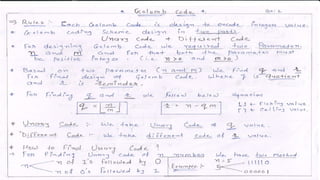 * Golomb Code *
⇒ Rules :- Each Golomb Code is design to encode integer value.
* Golomb coding Scheme design in two parts
Unary Code & Different Code
* For designing Golomb Code we required two Parameter
n and m and for that both the parameter
be positive integer (i.e. n>0 and m>0)
* Based on two parameter (n and m) We find q and r
for final design of Golomb Code. where q is Quotient
& r is reminder.
* For finding q and r We follow below equation
q = n/m
r = n - qm
* Unary Code :- We take Unary Code of q value.
* Different Code :- We take different code of r value.
* How to Find Unary Code ?
- For finding Unary code of n number We have two method
n
n of 1's followed by 0
n of 0's followed by 1
Example:-
n=5
5
111110
000001